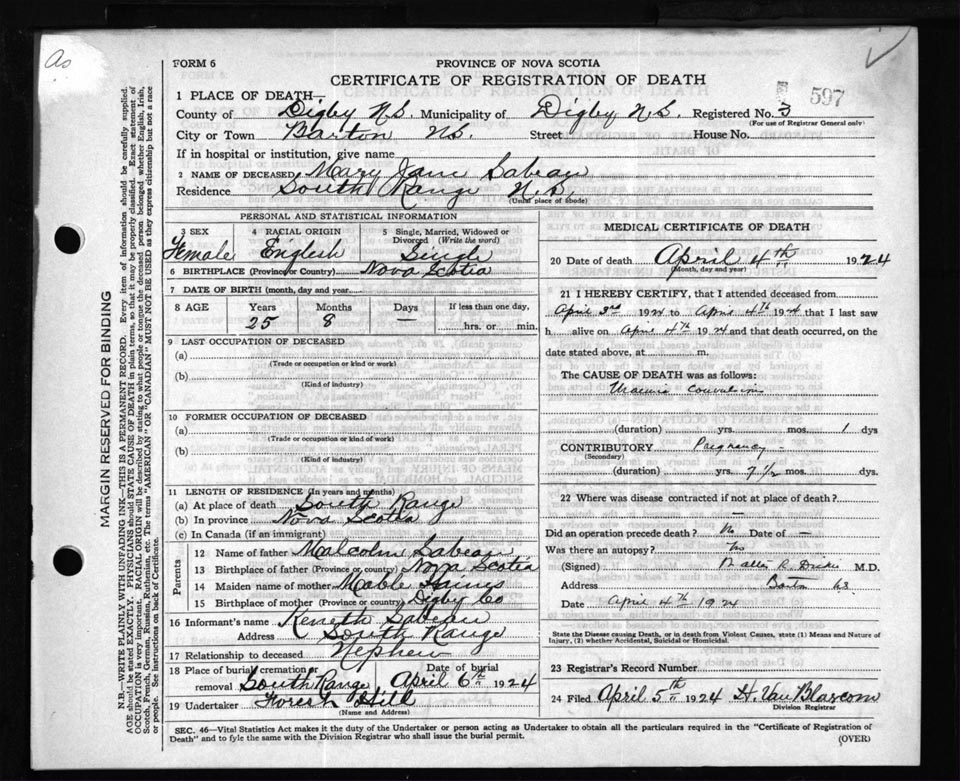 As
FORM 6
PROVINCE OF NOVA SCOTIA
CERTIFICATE OF REGISTRATION OF DEATH
597
1 PLACE OF DEATH—
County of Digby N.S. Municipality of Digby N.S. Registered No. 3
(For use of Registrar General only)
City or Town Barton N.S. Street House No.
If in hospital or institution, give name
2 NAME OF DECEASED Mary Jane Sabean
Residence South Range N.S.
(Usual place of abode)
PERSONAL AND STATISTICAL INFORMATION
3 SEX
Female
4 RACIAL ORIGIN
English
5 Single, Married, Widowed or Divorced (Write the word)
Single
6 BIRTHPLACE (Province or Country) Nova Scotia
7 DATE OF BIRTH (month, day and year)
8 AGE Years Months Days If less than one day,
25 8 — hrs. or min.
9 LAST OCCUPATION OF DECEASED
(a)
(Trade or occupation or kind or work)
(b)
(Kind of industry)
10 FORMER OCCUPATION OF DECEASED
(a)
(Trade or occupation or kind of work)
(b)
(Kind of industry)
11 LENGTH OF RESIDENCE (In years and months)
(a) At place of death South Range
(b) In province Nova Scotia
(c) In Canada (if an immigrant)
Parents
12 Name of father Malcolm Sabean
13 Birthplace of father (Province or country) Nova Scotia
14 Maiden name of mother Mable Haines
15 Birthplace of mother (Province or country) Digby Co
16 Informant's name Keneth Sabean
Address South Range
17 Relationship to deceased Nephew
18 Place of burial, cremation or removal South Range Date of burial April 6th 1924
19 Undertaker Foresh Hill
(Name and Address)
MEDICAL CERTIFICATE OF DEATH
20 Date of death April 4th 1924
(Month, day and year)
21 I HEREBY CERTIFY, that I attended deceased from
April 3rd 1924 to April 4th 1924 that I last saw
h alive on April 4th 1924 and that death occurred, on the
date stated above, at m.
The CAUSE OF DEATH was as follows:
Uraemic Convulsions
(duration) yrs. mos. 1 dys
CONTRIBUTORY Pregnancy
(Secondary)
(duration) yrs. 7 1/2 mos. dys.
22 Where was disease contracted if not at place of death?
—
Did an operation precede death? No Date of —
Was there an autopsy? No
(Signed) M.D.
Address Barton NS
Date April 4th 1924
State the Disease causing Death, or in death from Violent Causes, state (1) Means and Nature of Injury, (2) whether Accidental, Suicidal or Homicidal.
23 Registrar's Record Number
24 Filed April 5th 1924 H. Van Blarcom
Division Registrar
SEC. 46—Vital Statistics Act makes it the duty of the Undertaker or person acting as Undertaker to obtain all the particulars required in the "Certificate of Registration of
Death" and to fyle the same with the Division Registrar who shall issue the burial permit.
(OVER)
MARGIN RESERVED FOR BINDING
N.B.—WRITE PLAINLY WITH UNFADING INK—THIS IS A PERMANENT RECORD. Every item of information should be carefully supplied.
AGE should be stated EXACTLY. PHYSICIANS should STATE CAUSE OF DEATH in plain terms, so that it may be properly classified. Exact statement of
OCCUPATION is very important. RACIAL ORIGIN will be described by stating to what people or tongue the deceased person belonged whether English, Irish,
Scotch, French, German, Russian, Ruthenian, etc. The terms "AMERICAN" OR "CANADIAN" MUST NOT BE USED as they express citizenship but not a race
or people. See instructions on back of Certificate.